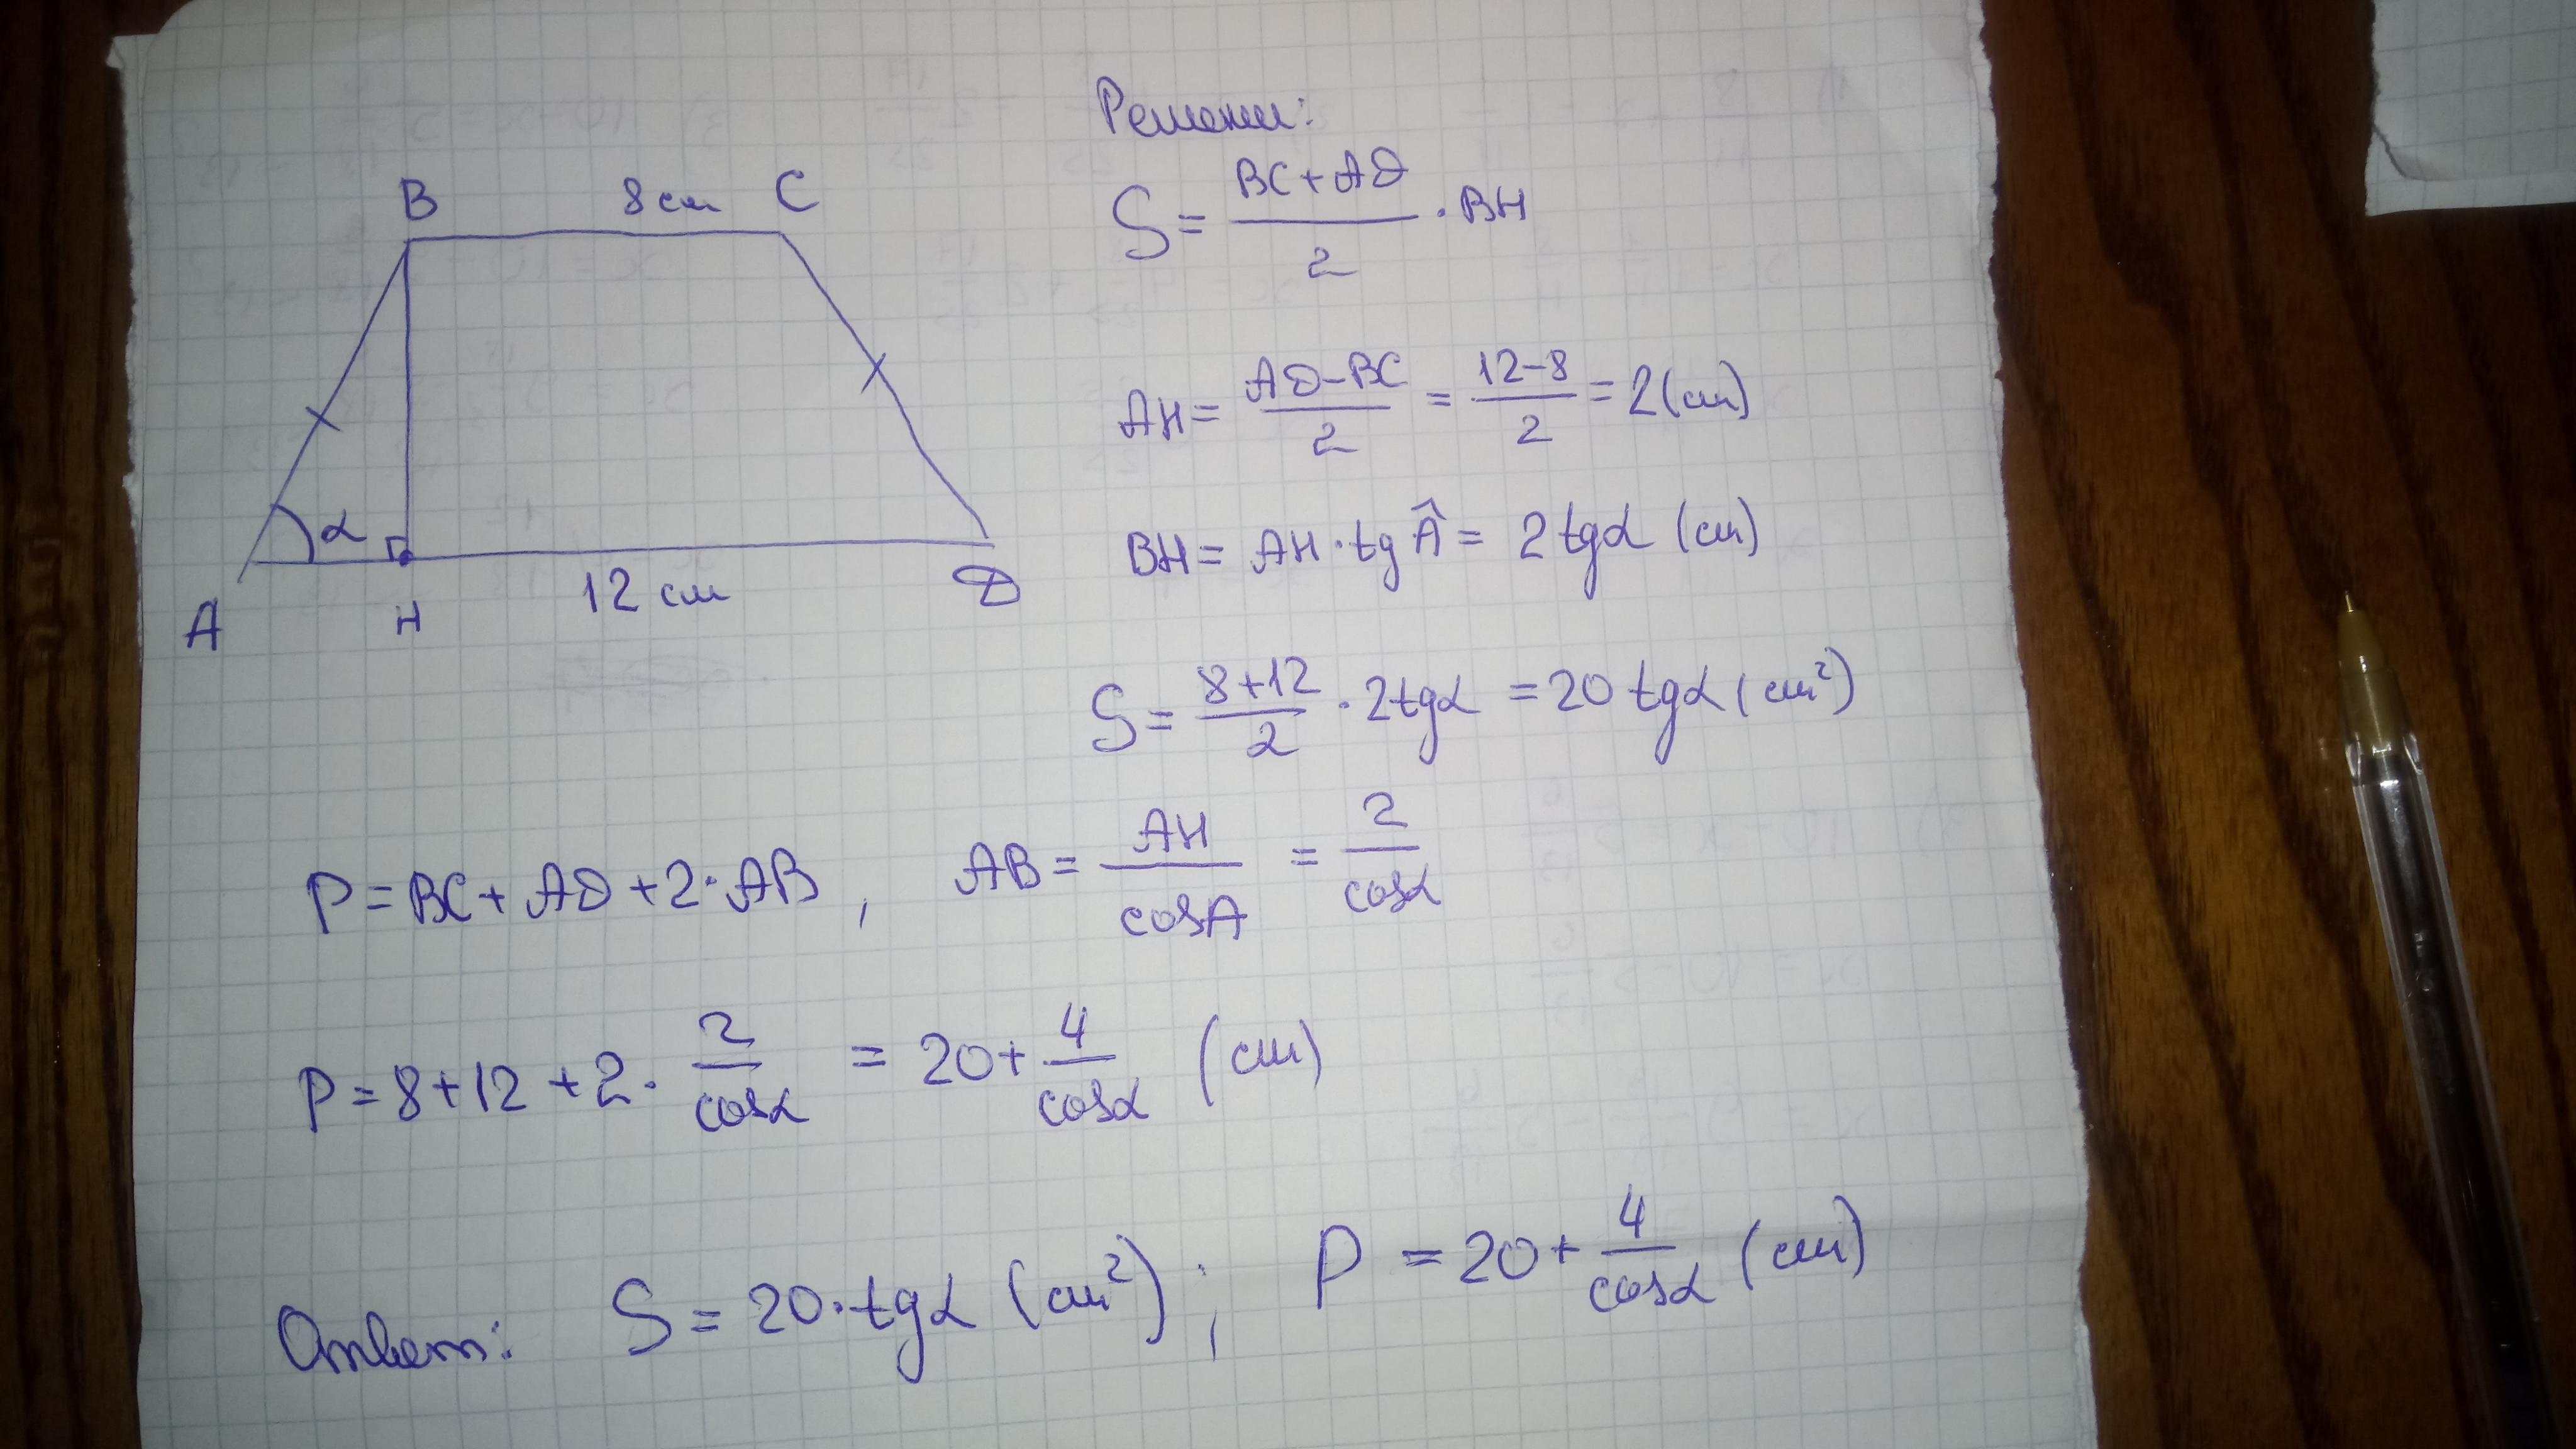 B 8 см C
α
A H 12 см D
Решение:
S = (BC + AD)/2 · BH
AH = (AD − BC)/2 = (12 − 8)/2 = 2 (см)
BH = AH · tg Â = 2 tgα (см)
S = (8 + 12)/2 · 2tgα = 20 tgα (см²)
P = BC + AD + 2 · AB, AB = AH/cosA = 2/cosα
P = 8 + 12 + 2 · 2/cosα = 20 + 4/cosα (см)
Ответ: S = 20 · tgα (см²); P = 20 + 4/cosα (см)